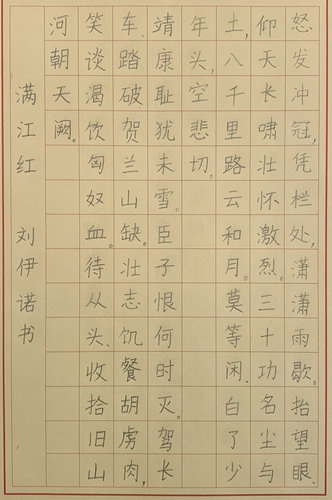 怒发冲冠,凭栏处,潇潇雨歇。抬望眼、
仰天长啸壮怀激烈。三十功名尘与
土,八千里路云和月。莫等闲、白了少
年头,空悲切。
靖康耻犹未雪。臣子恨何时灭。驾长
车、踏破贺兰山缺。壮志饥餐胡虏肉,
笑谈渴饮匈奴血。待从头、收拾旧山
河朝天阙。
满江红 刘伊诺书